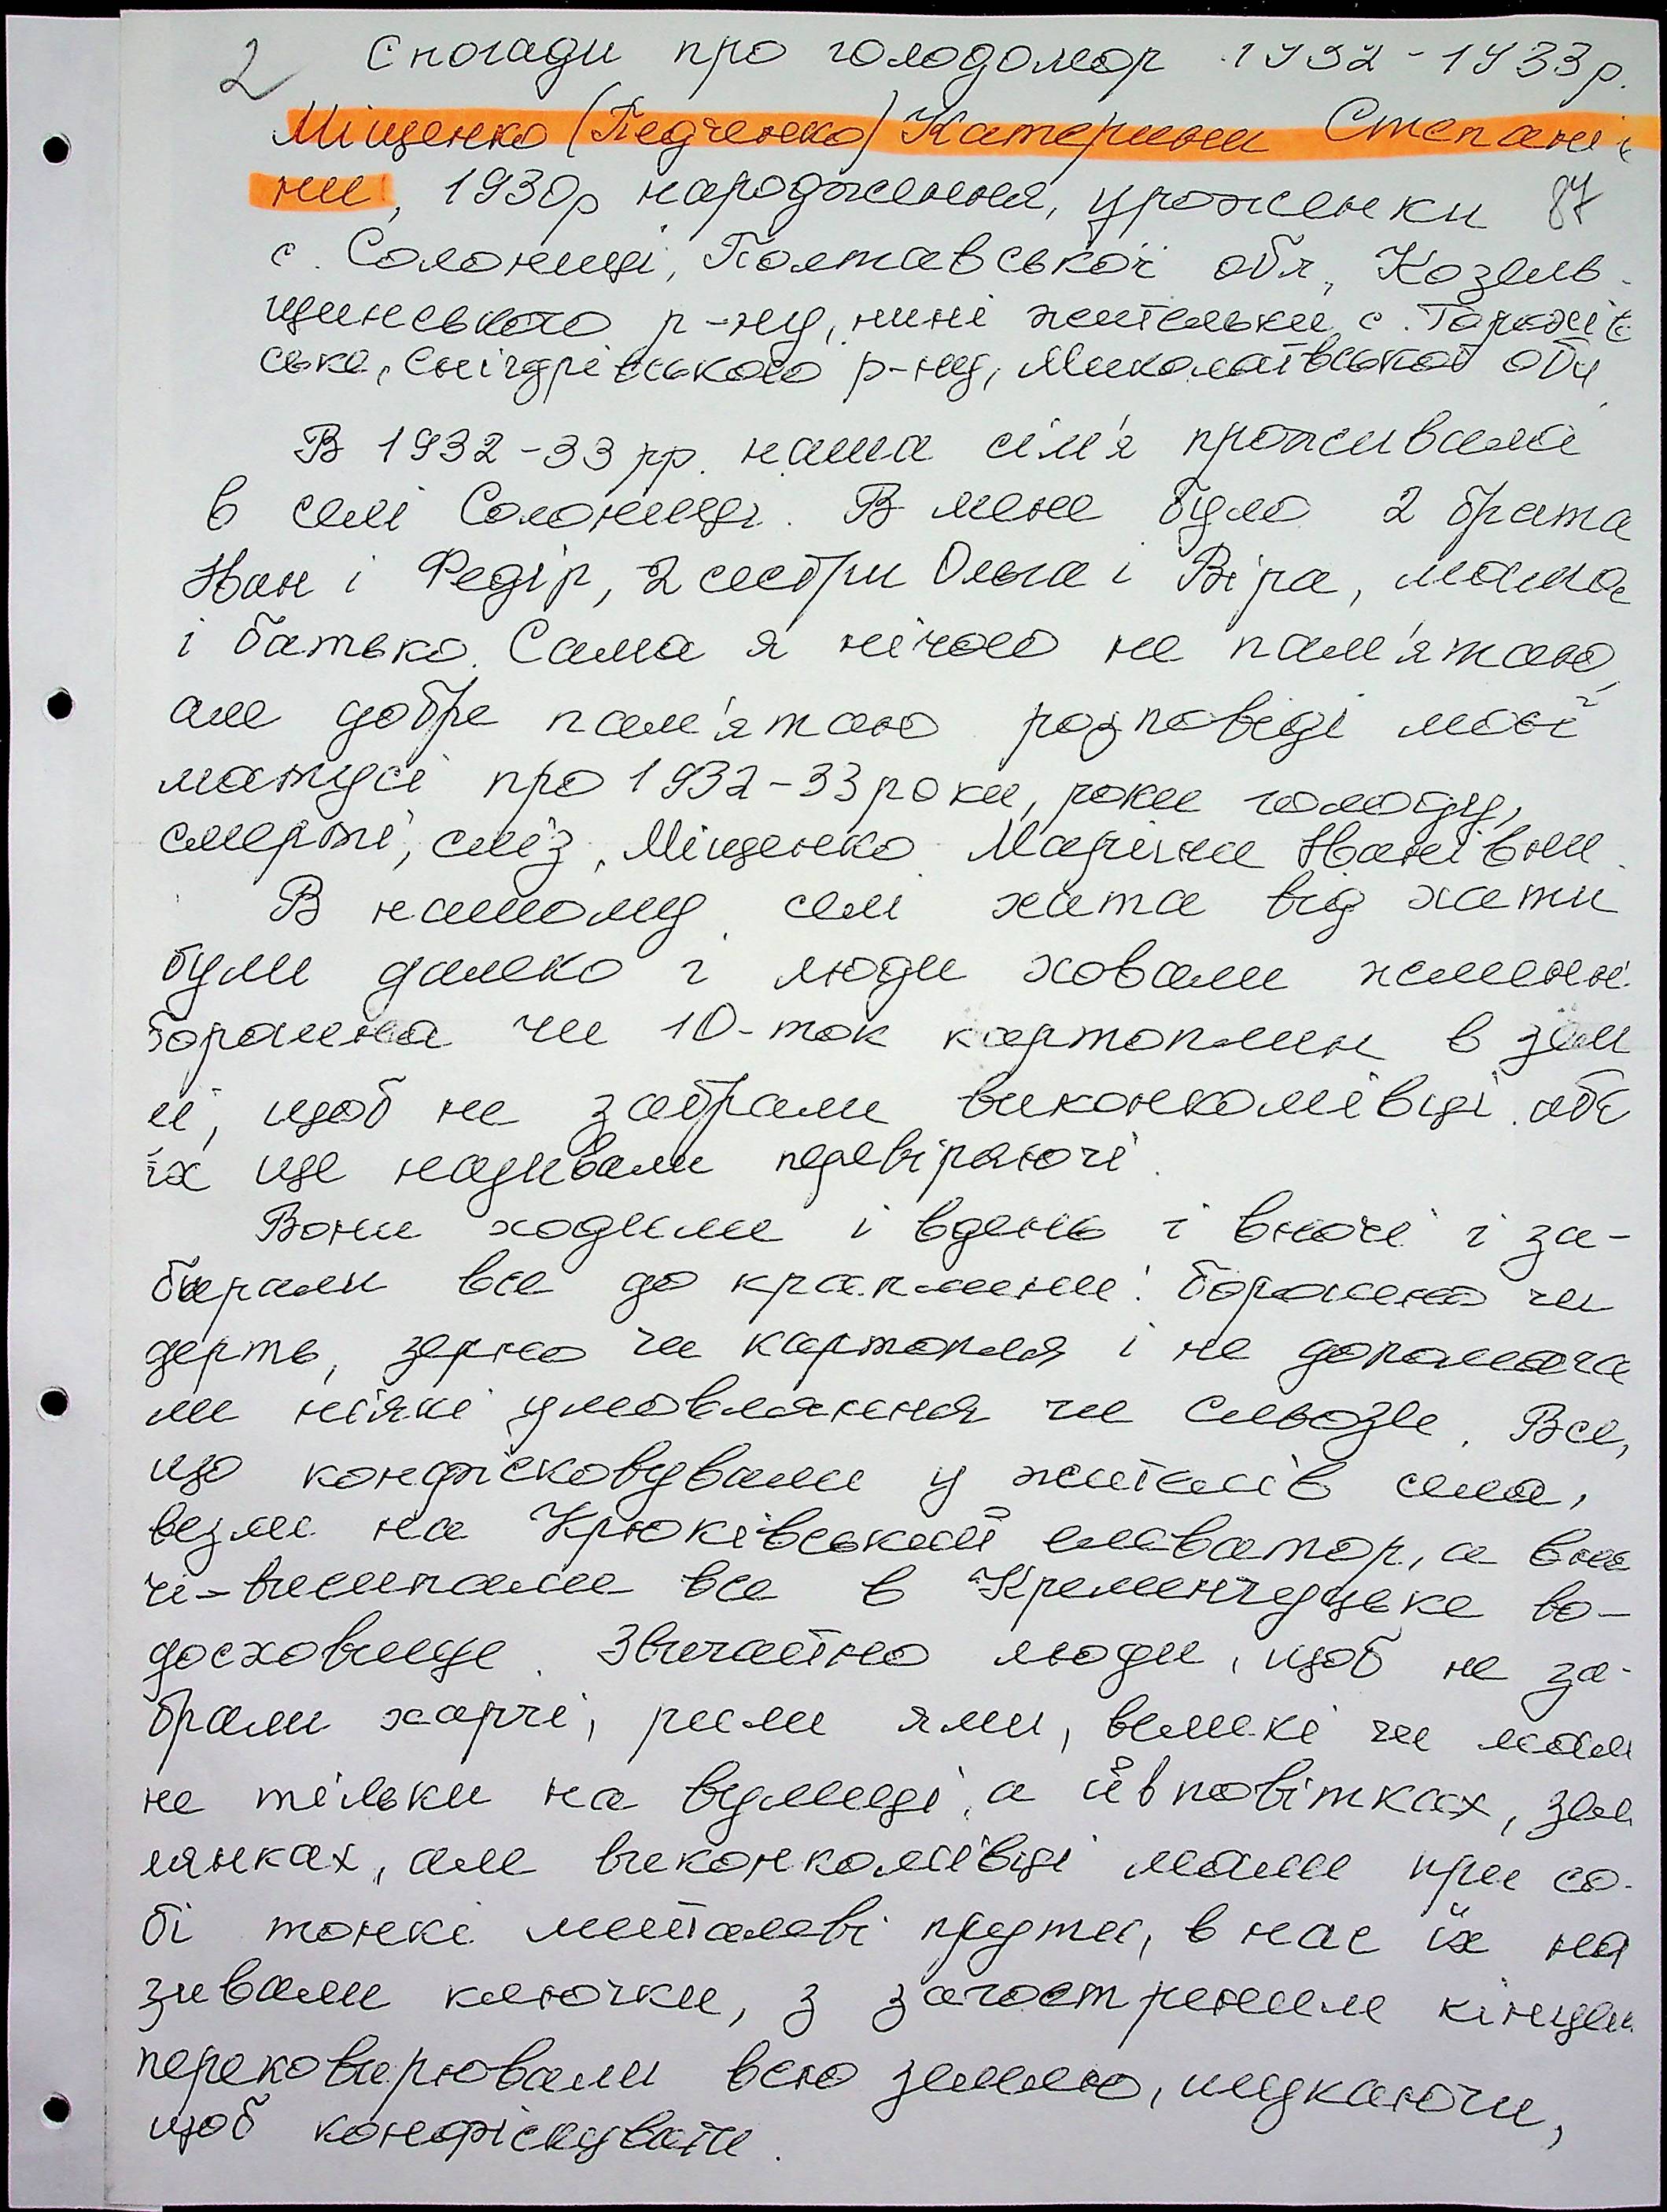 2 Спогади про голодомор 1932-1933р.
Міщенко (Педченко) Катерини Степанів
ни, 1930р народження, уроженки 87
с. Солониці, Полтавської обл, Козель-
щинського р-ну, нині жительки с.
ське, Снігурівського р-ну, Миколаївської обл
В 1932-33 рр. наша сім'я проживала
в селі Солониці. В мене було 2 брата
Іван і Федір, 2 сестри Ольга і Віра, мама
і батько. Сама я нічого не пам'ятаю,
але добре пам'ятаю розповіді моєї
матусі про 1932-33 роки, роки голоду,
смерті, сліз, Міщенко Марини Іванівни.
В нашому селі хата від хати
були далеко і люди ховали жмені
борошна чи 10-ток картоплин в зем
лі, щоб не забрали виконкомівці. або
їх ще називали перевіряючі.
Вони ходили і вдень і вночі і за-
бирали все до краплини: борошно чи
дерть, зерно чи картопля і не допомага
ли ніякі умовляння чи сльози. Все,
що конфісковували у жителів села,
везли на Крюківський елеватор, а вно
чі-висипали все в Кременчуцьке во-
досховище. Звичайно люди, щоб не за-
брали харчі, рили ями, великі чи малі
не тільки на вулиці, а й в повітках, зем
лянках, але виконкомівці мали при со-
бі тонкі металеві прути, в нас їх на
зивали ключки, з загостреним кінцем
перековирювали всю землю, шукаючи,
щоб конфіскувати.